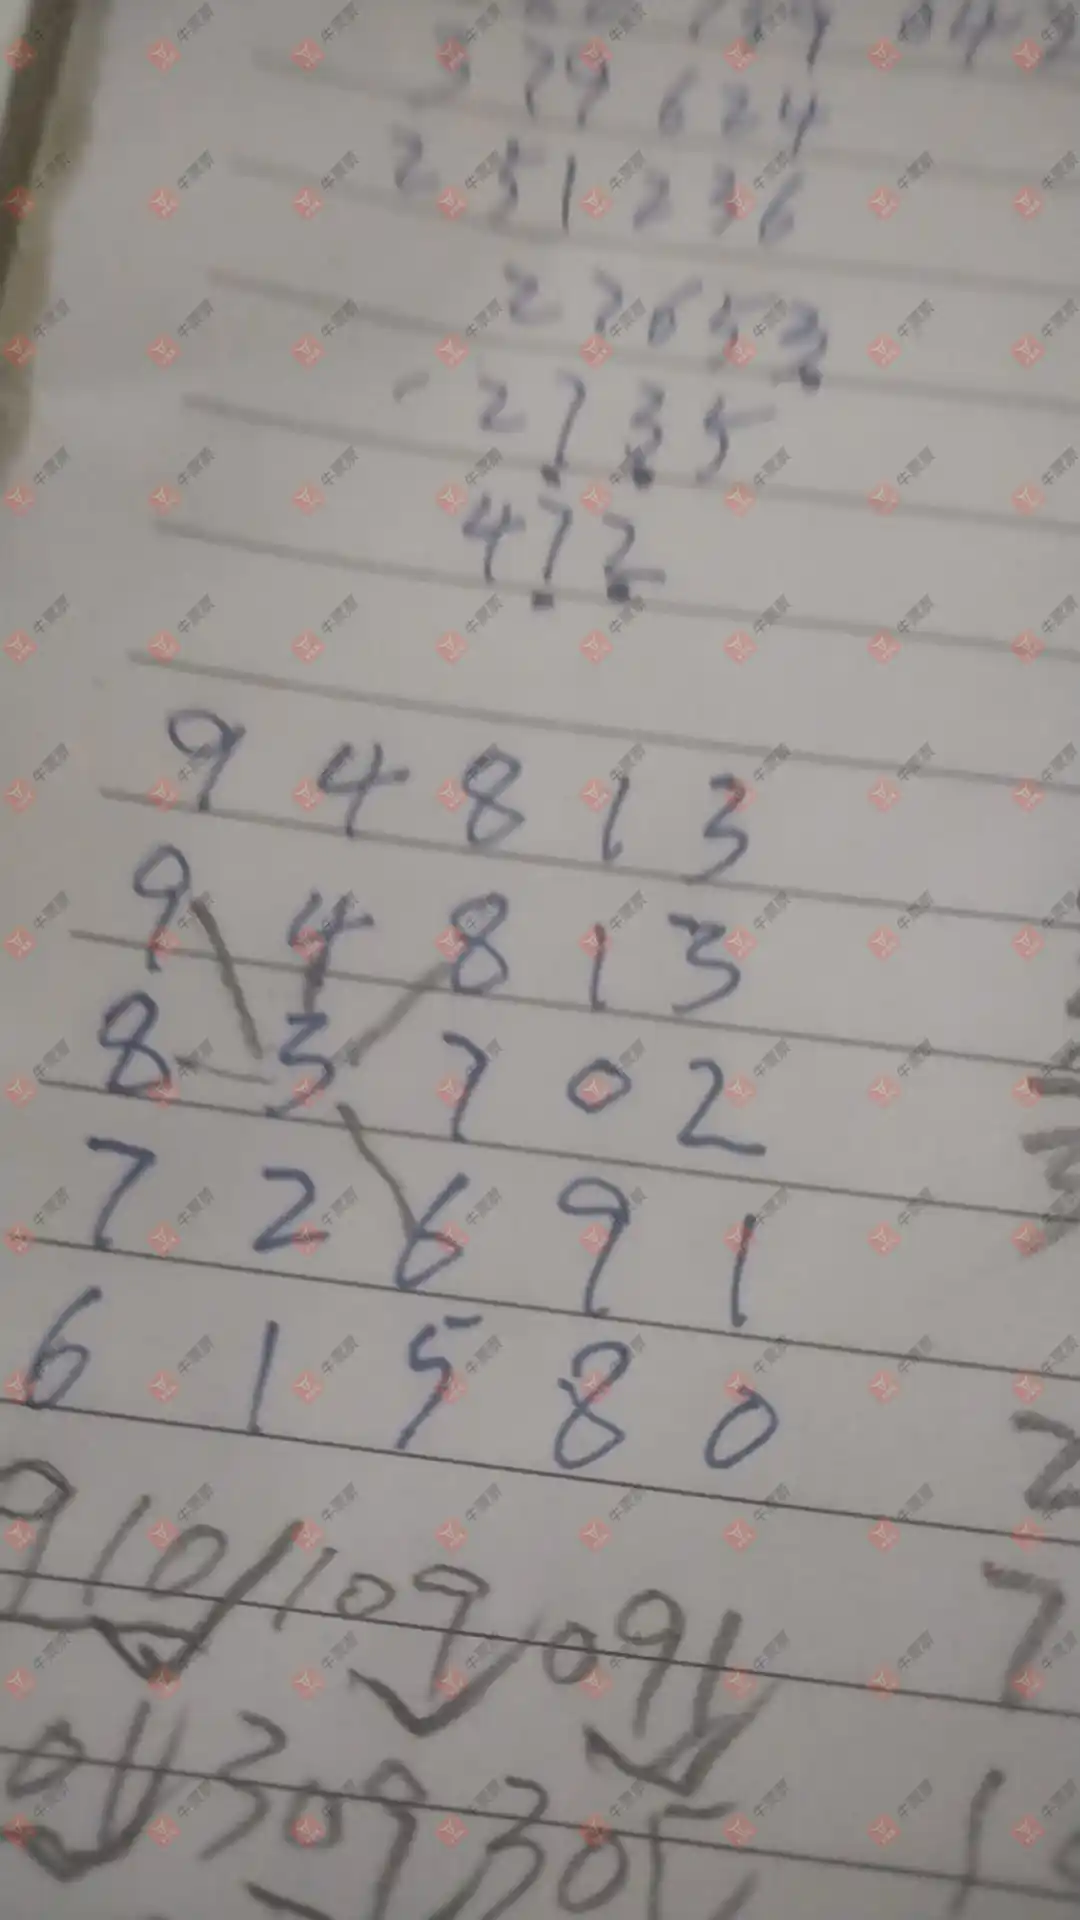 379 624
251 236
22652
- 2735
472
9 4 8 1 3
9 4 8 1 3
8 3 7 0 2
7 2 6 9 1
6 1 5 8 0
910/109 091 7
011 309 305
牛票票